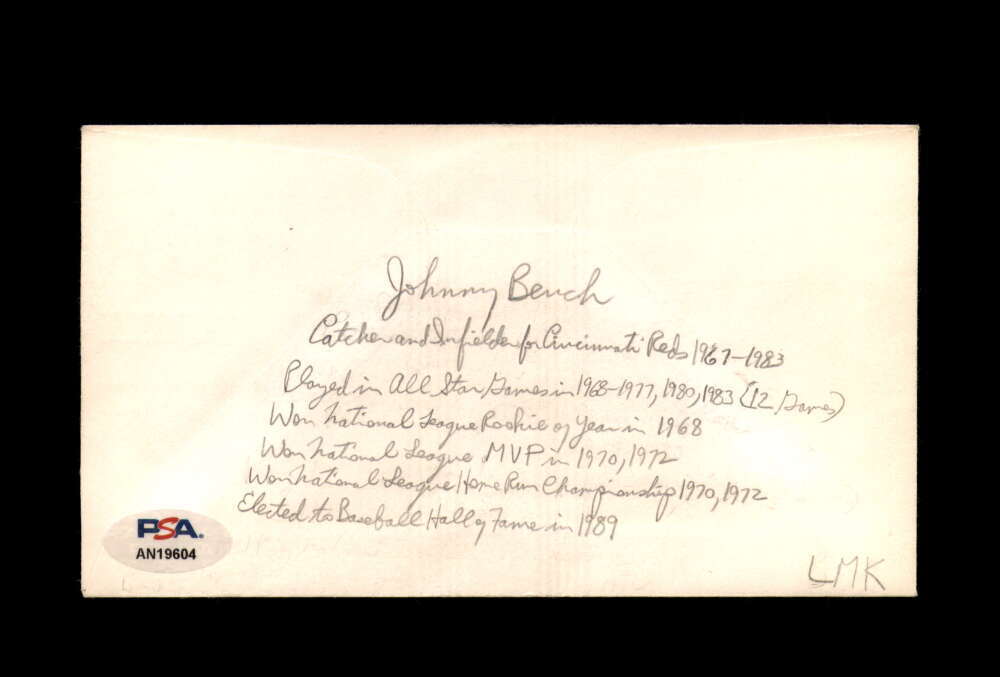 Johnny Bench
Catcher and Infielder for Cincinnati Reds 1967-1983
Played in All Star Games in 1968-1977, 1980, 1983 (12 Games)
Won National League Rookie of Year in 1968
Won National League MVP in 1970, 1972
Won National League Home Run Championship 1970, 1972
Elected to Baseball Hall of Fame in 1989
PSA.
AN19604
LMK